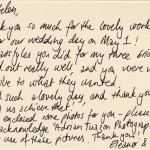 Helen,
k you so much for the lovely work
our wedding day on May 1!
airstyles you did for my three brid
out really well, and you were v
ive to what they wanted
such a lovely day, and thank you
us achieve that!
enclosed some photos for you - please
acknowledge Adrian Tuazon Photograph
use of these pictures. Thank you!
Eleanor &